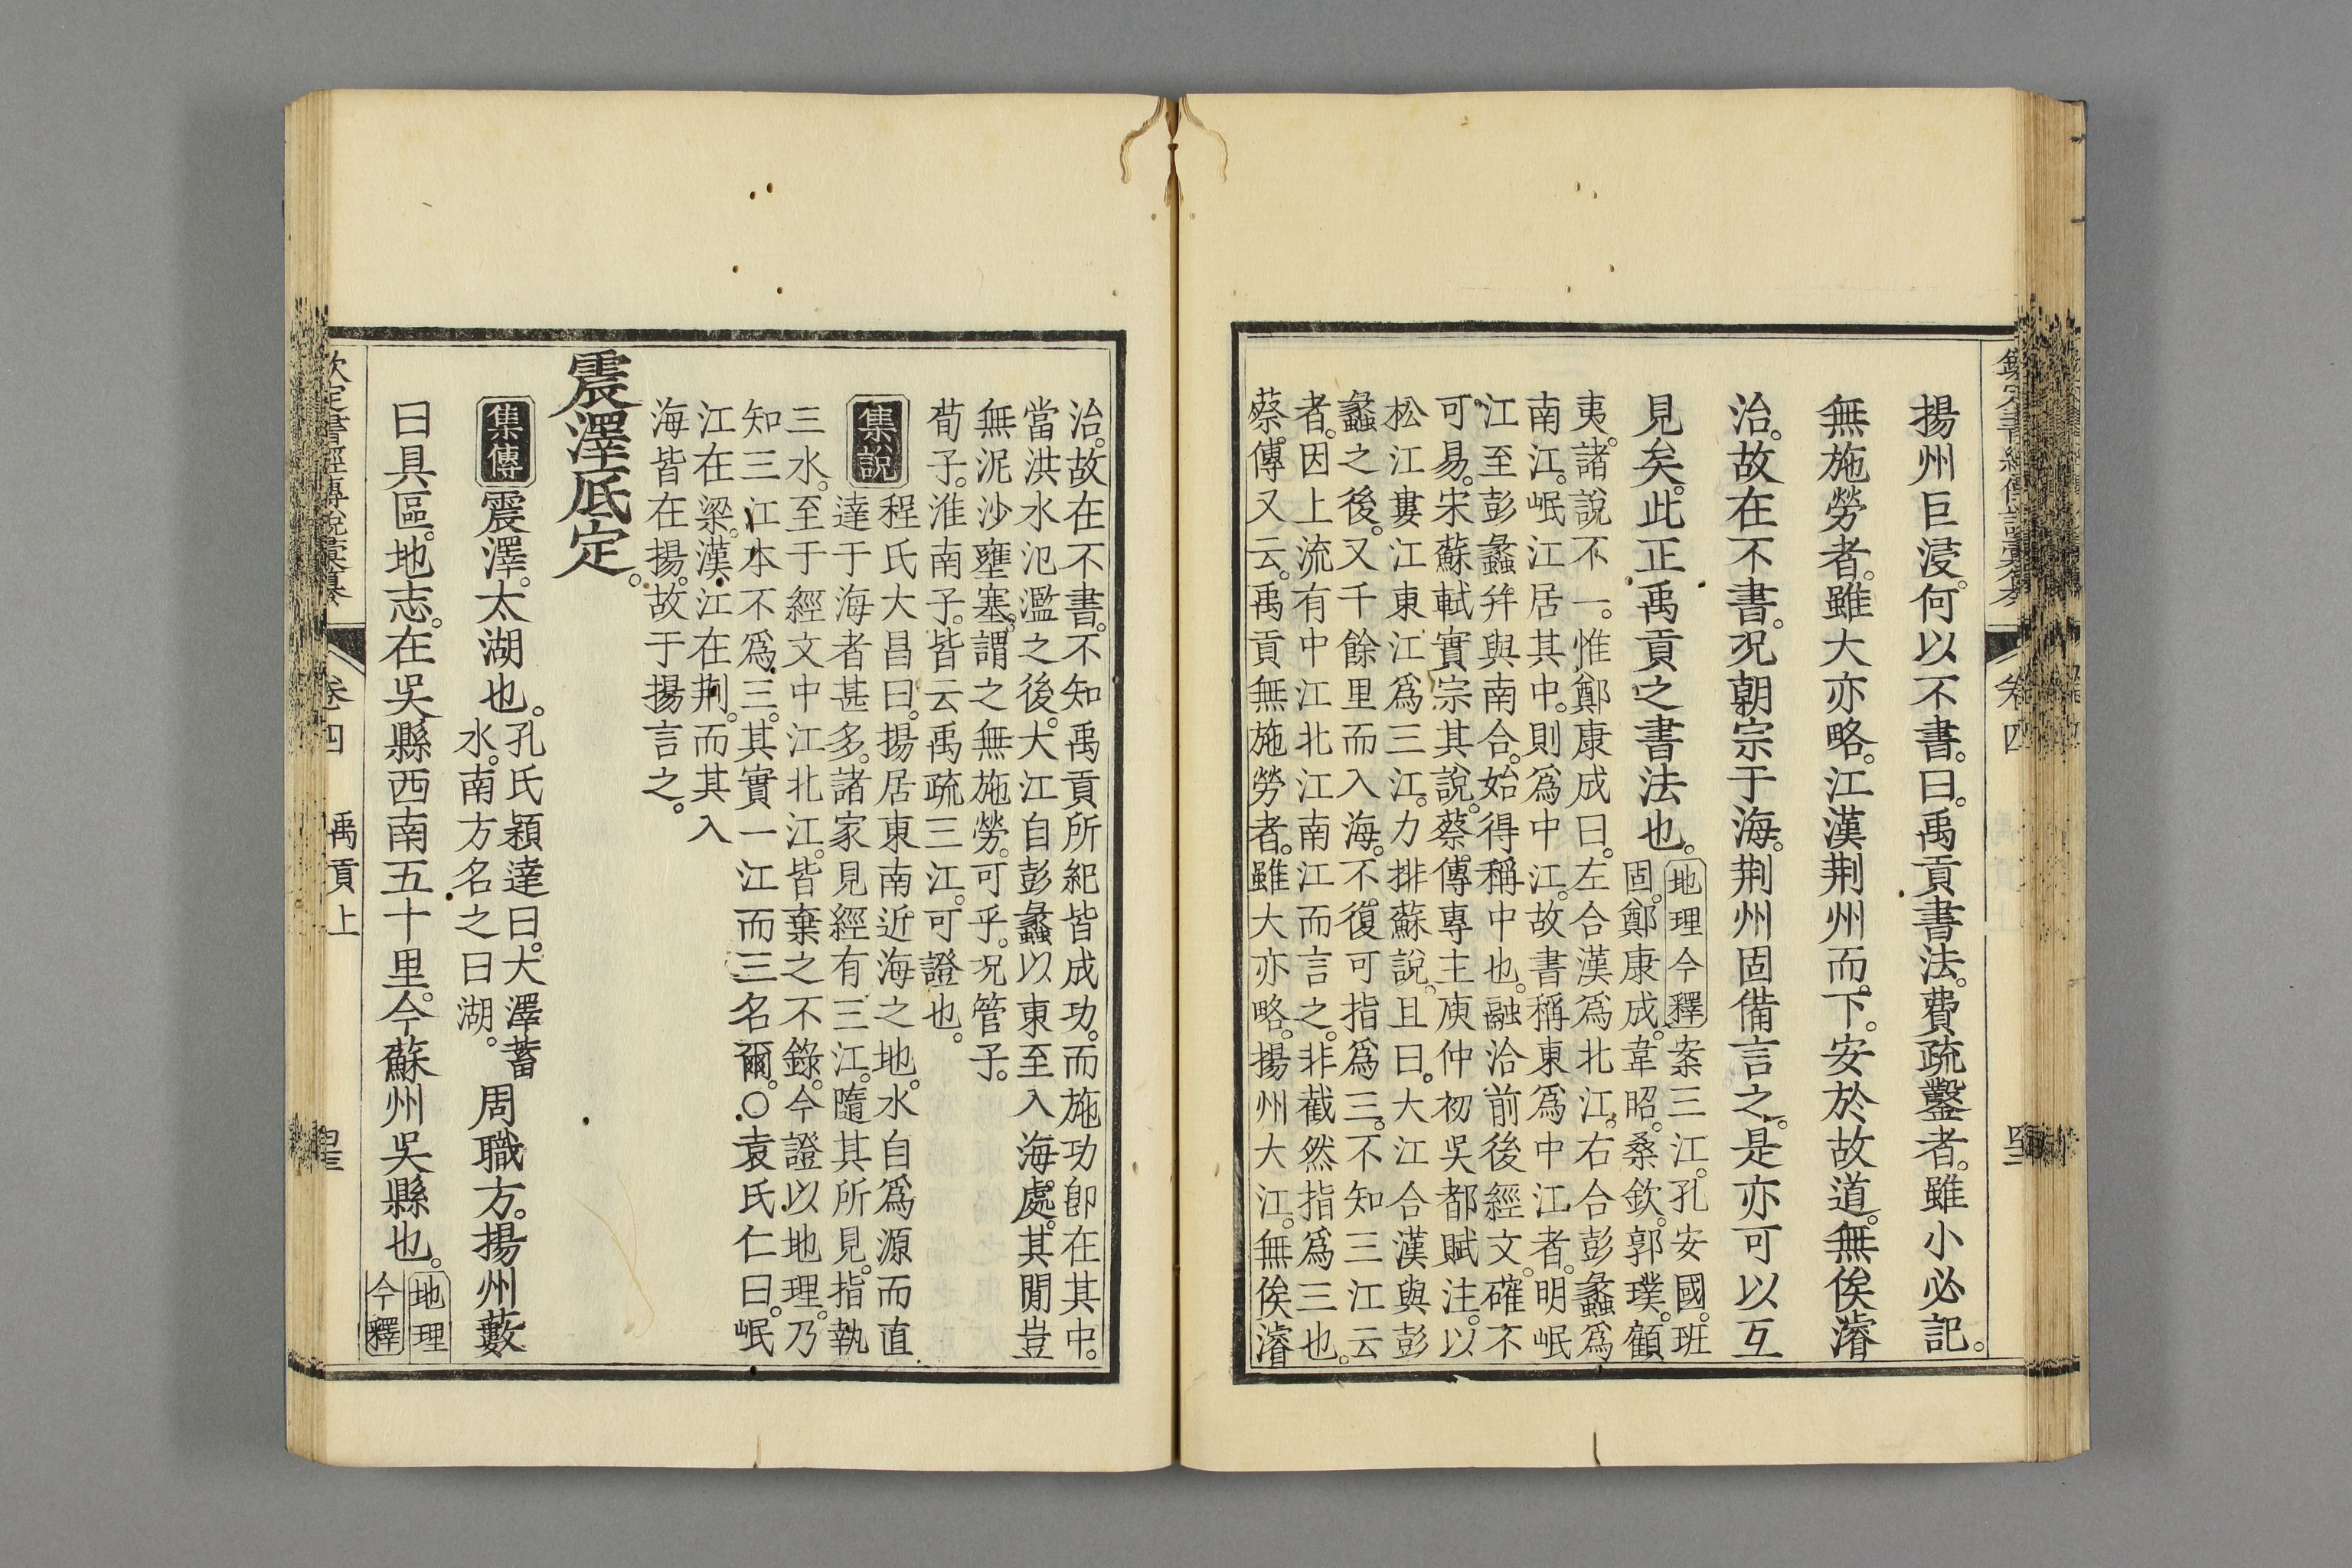 揚州巨浸。何以不書。曰。禹貢書法。費疏鑿者。雖小必記。
無施勞者。雖大亦略。江漢荆州而下。安於故道。無俟濬
治。故在不書。况朝宗于海。荆州固備言之。是亦可以互
見矣。此正禹貢之書法也。
地理今釋案三江。孔安國。班
固。鄭康成。韋昭。桑欽。郭璞。顧
夷。諸說不一。惟鄭康成曰。左合漢爲北江。右合彭蠡爲
南江。岷江居其中。則爲中江。故書稱東爲中江者。明岷
江至彭蠡。幷與南合。始得稱中也。融洽前後經文。確不
可易。宋蘇軾實宗其說。蔡傳專主庾仲初吳都賦注。以
松江婁江東江爲三江。力排蘇說。且曰。大江合漢與彭
蠡之後。又千餘里而入海。不復可指爲三。不知三江云
者。因上流有中江北江南江而言之。非截然指爲三也。
蔡傳又云。禹貢無施勞者。雖大亦略。揚州大江。無俟濬
治。故在不書。不知禹貢所紀皆成功。而施功卽在其中。
當洪水氾濫之後。大江自彭蠡以東至入海處。其閒豈
無泥沙壅塞。謂之無施勞。可乎。况管子。
荀子。淮南子。皆云禹疏三江。可證也。
集說
程氏大昌曰。揚居東南。近海之地。水自爲源而直
達于海者甚多。諸家見經有三江。隨其所見。指執
三水。至于經文中江北江。皆棄之不錄。今證以地理。乃
知三江本不爲三。其實一江而三名爾。○袁氏仁曰。岷
江在梁。漢江在荆。而其入
海皆在揚。故于揚言之。
震澤厎定。
集傳
震澤。太湖也。
孔氏穎達曰。大澤蓄
水。南方名之曰湖。
周職方。揚州藪
曰具區。地志。在吳縣西南五十里。今蘇州吳縣也。
地理
今釋
欽定書經傳說彙纂
卷四
禹貢上